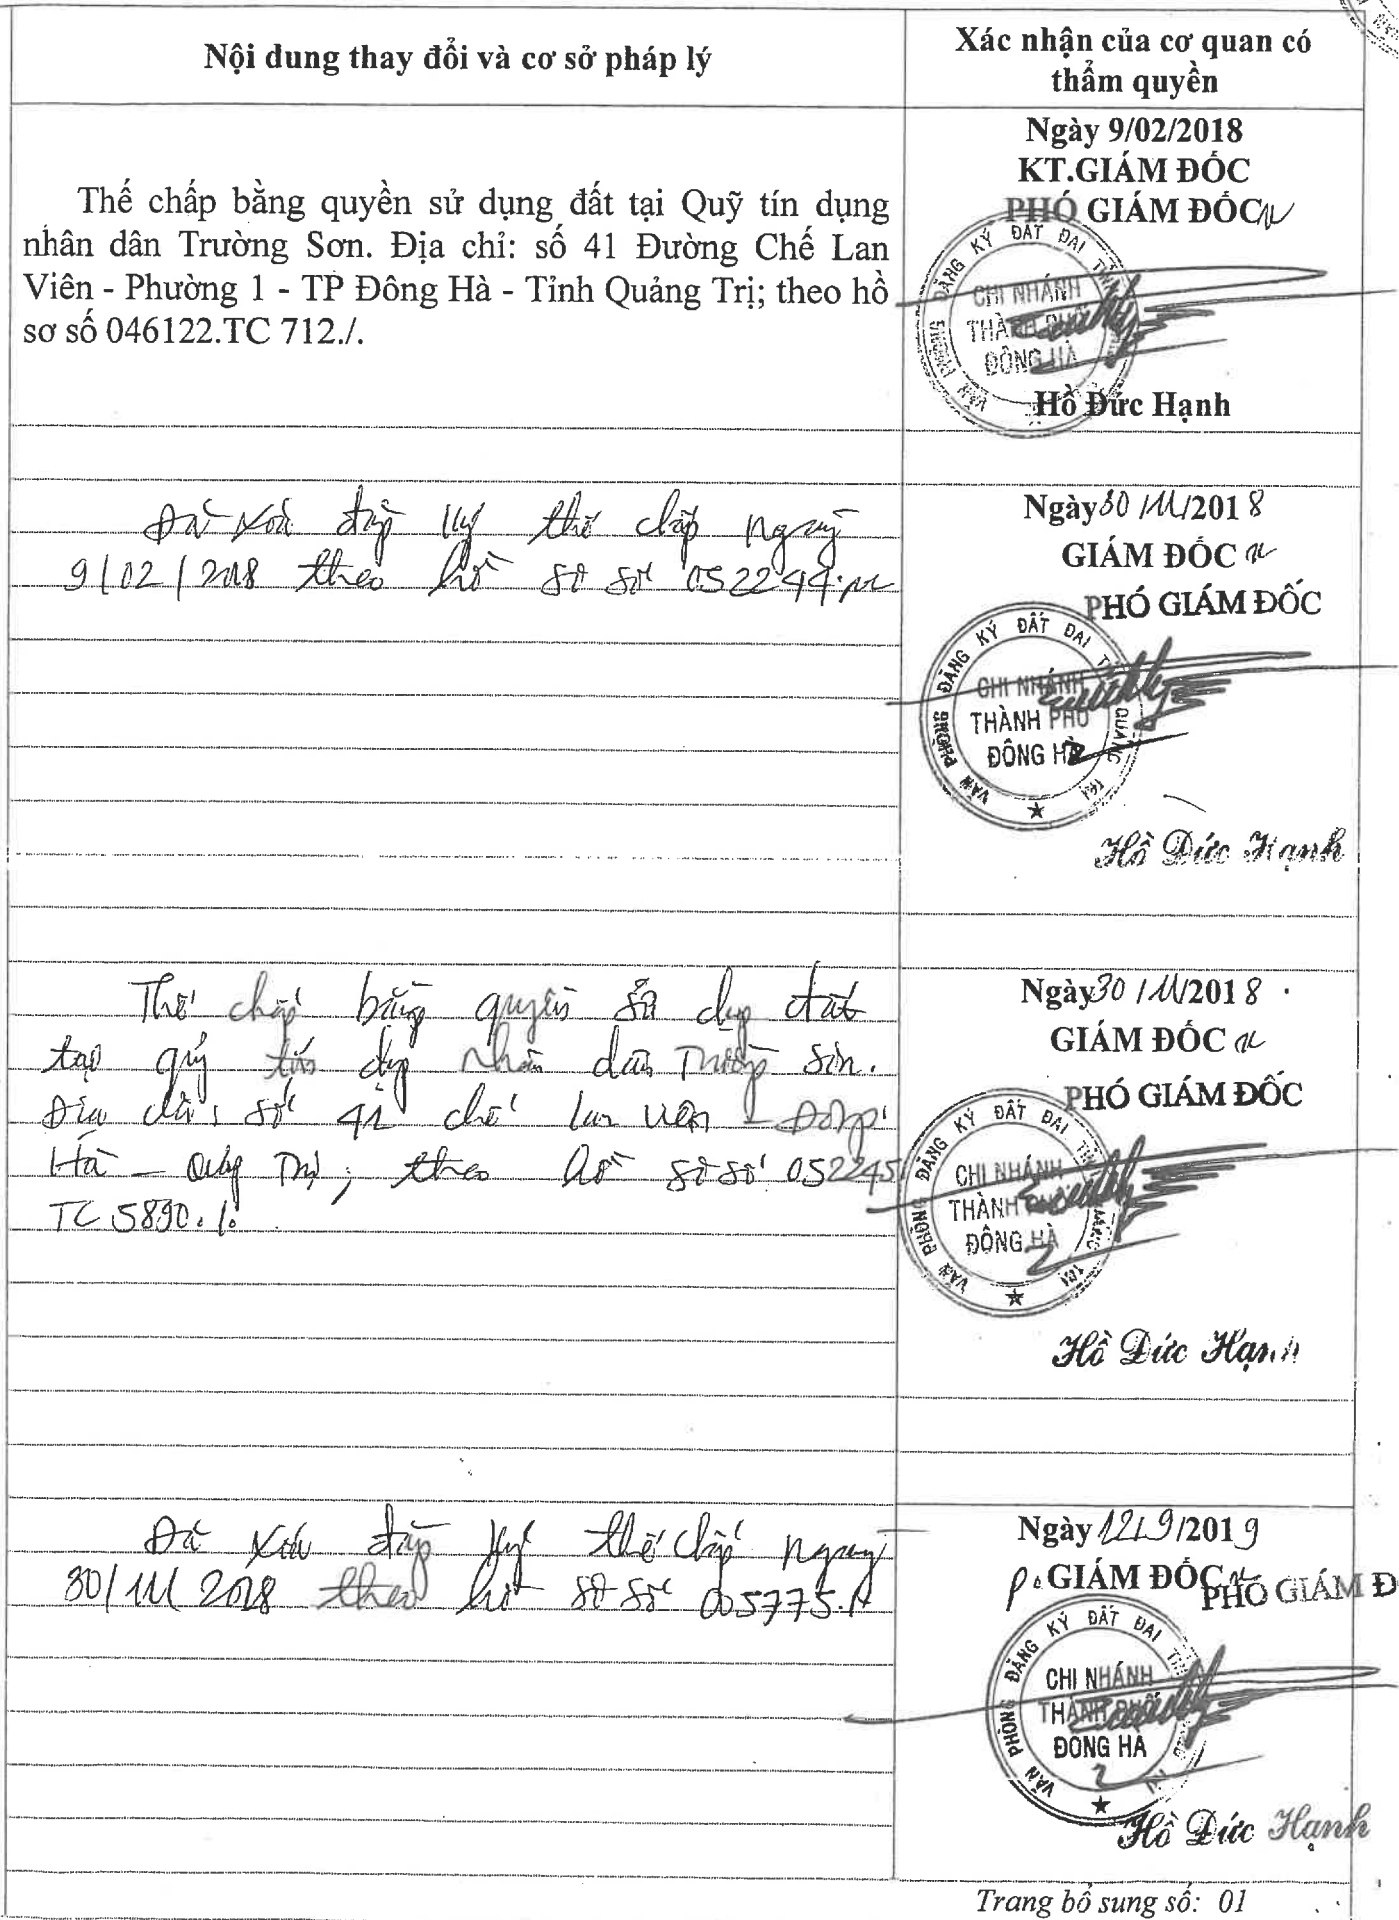 Nội dung thay đổi và cơ sở pháp lý
Xác nhận của cơ quan có
thẩm quyền
Thế chấp bằng quyền sử dụng đất tại Quỹ tín dụng
nhân dân Trường Sơn. Địa chỉ: số 41 Đường Chế Lan
Viên - Phường 1 - TP Đông Hà - Tỉnh Quảng Trị; theo hồ
sơ số 046122.TC 712./.
Ngày 9/02/2018
KT.GIÁM ĐỐC
PHÓ GIÁM ĐỐC
VĂN PHÒNG ĐĂNG KÝ ĐẤT ĐAI
CHI NHÁNH
THÀNH PHỐ
ĐÔNG HÀ
Hồ Đức Hạnh
Đã xoá đăng ký thế chấp ngày
9/02/2018 theo hồ sơ số 052244
Ngày 30/11/2018
GIÁM ĐỐC
PHÓ GIÁM ĐỐC
VĂN PHÒNG ĐĂNG KÝ ĐẤT ĐAI TỈNH QUẢNG TRỊ
CHI NHÁNH
THÀNH PHỐ
ĐÔNG HÀ
Hồ Đức Hạnh
Thế chấp bằng quyền sử dụng đất
tại quỹ tín dụng nhân dân Trường Sơn.
Địa chỉ: số 41 chế lan viên - Đông
Hà - Quảng Trị; theo hồ sơ số 052245
TC 5890./.
Ngày 30/11/2018
GIÁM ĐỐC
PHÓ GIÁM ĐỐC
VĂN PHÒNG ĐĂNG KÝ ĐẤT ĐAI
CHI NHÁNH
THÀNH PHỐ
ĐÔNG HÀ
Hồ Đức Hạnh
Đã xoá đăng ký thế chấp ngày
30/11/2018 theo hồ sơ số 005775
Ngày 12/9/2019
GIÁM ĐỐC
PHÓ GIÁM Đ
VĂN PHÒNG ĐĂNG KÝ ĐẤT ĐAI
CHI NHÁNH
THÀNH PHỐ
ĐÔNG HÀ
Hồ Đức Hạnh
Trang bổ sung số: 01